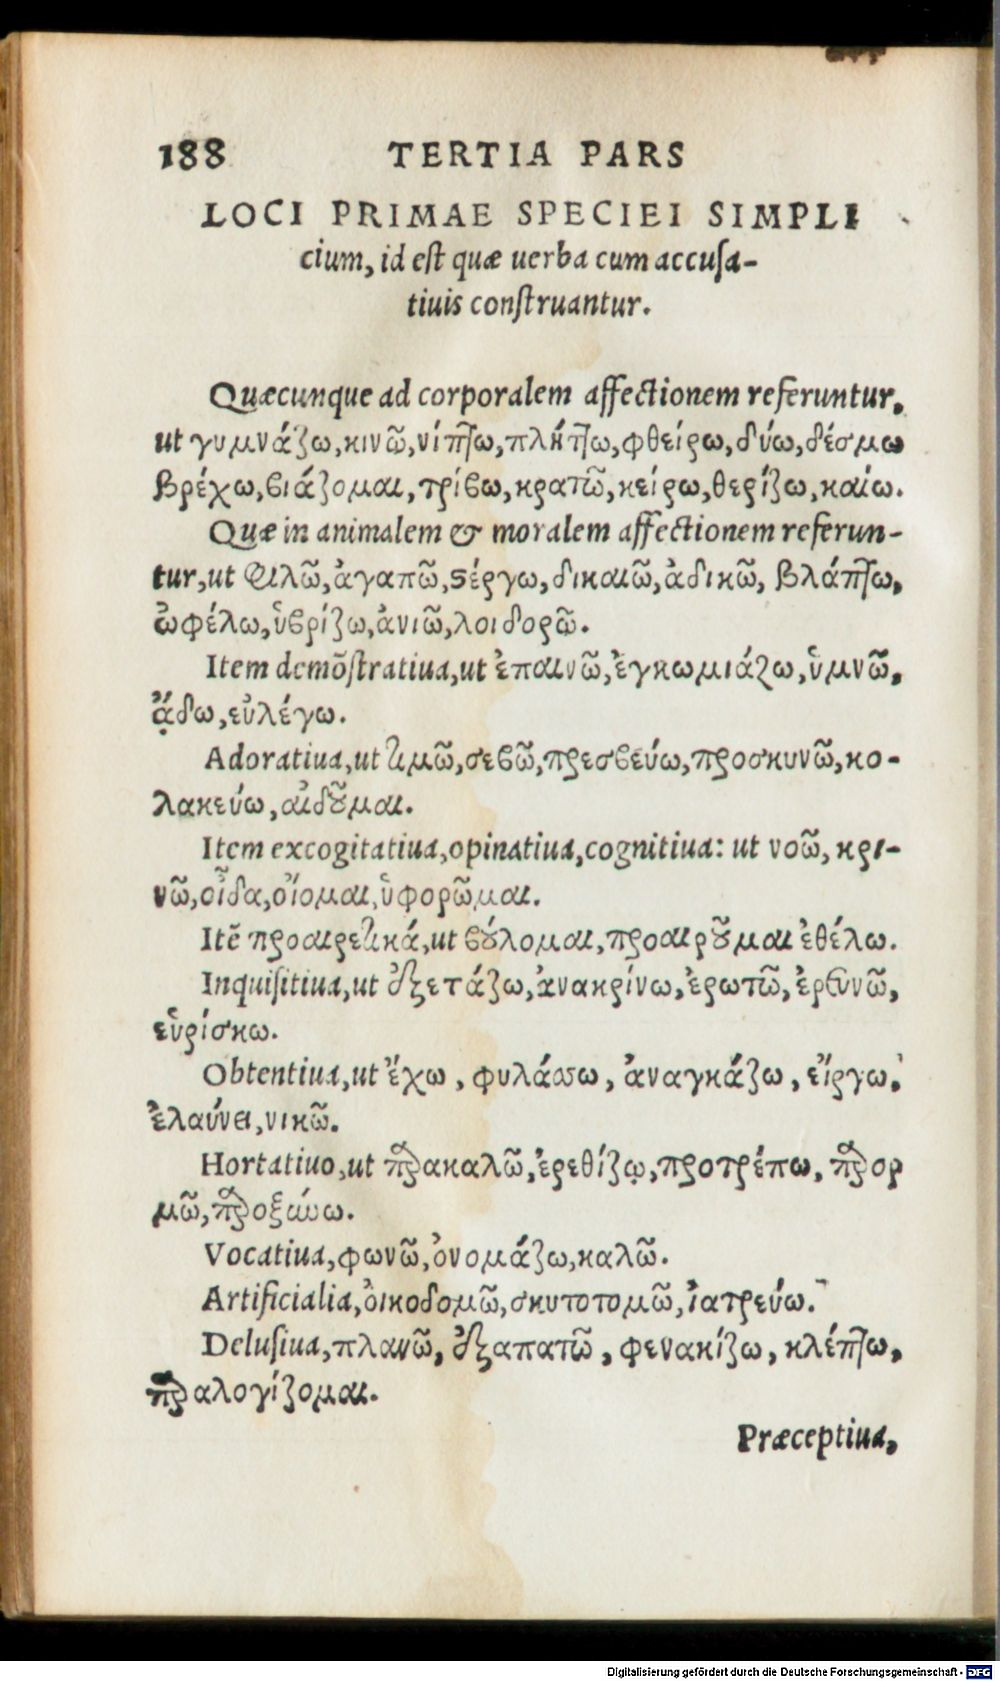 188 TERTIA PARS
LOCI PRIMAE SPECIEI SIMPLI
cium, id est quæ uerba cum accusa-
tiuis construantur.
Quæcunque ad corporalem affectionem referuntur,
ut γυμνάζω, κινῶ, νίπτω, πλήτω, φθείρω, δύω, δέσμω
βρέχω, βιάζομαι, τρίβω, κρατῶ, κείρω, θερίζω, καίω.
Quæ in animalem & moralem affectionem referun-
tur, ut φιλῶ, ἀγαπῶ, στέργω, δικαιῶ, ἀδικῶ, βλάπτω,
ὠφέλω, ὑβρίζω, ἀνιῶ, λοιδορῶ.
Item demõstratiua, ut ἐπαινῶ, ἐγκωμιάζω, ὑμνῶ,
ᾄδω, εὐλέγω.
Adoratiua, ut τιμῶ, σεβῶ, πρεσβεύω, προσκυνῶ, κο-
λακεύω, αἰδοῦμαι.
Item excogitatiua, opinatiua, cognitiua: ut νοῶ, κρι-
νῶ, οἶδα, οἴομαι, ὑφορῶμαι.
Itẽ προαιρετικά, ut βούλομαι, προαιροῦμαι ἐθέλω.
Inquisitiua, ut ἐξετάζω, ἀνακρίνω, ἐρωτῶ, ἐρευνῶ,
εὑρίσκω.
Obtentiua, ut ἔχω, φυλάσσω, ἀναγκάζω, εἴργω,
ἐλαύνει, νικῶ.
Hortatiuo, ut παρακαλῶ, ἐρεθίζῳ, προτρέπω, παρορ
μῶ, παροξύνω.
Vocatiua, φωνῶ, ὀνομάζω, καλῶ.
Artificialia, ὀικοδομῶ, σκυτοτομῶ, ἰατρεύω.
Delusiua, πλανῶ, ἐξαπατῶ, φενακίζω, κλέπτω,
παραλογίζομαι.
Præceptiua,
Digitalisierung gefördert durch die Deutsche Forschungsgemeinschaft - DFG